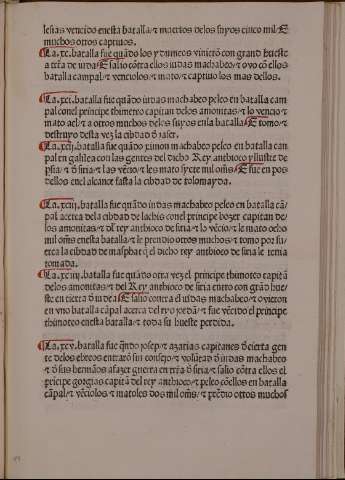 lesias vencido enesta batalla/ ⁊ muertos delos suyos cinco mil/ E
muchos otros captiuos.
La .xc. batalla fue quãdo los ydumeos viniero͂ con grand hueste
a tr̃ra de iuda/ E salio co͂tra ellos iudas machabeo/ ⁊ ouo co͂ ellos
batalla campal/ ⁊ vencio los/ ⁊ mato/ ⁊ captiuo los mas dellos.
La .xci. batalla fue quãdo iudas machabeo peleo en batalla cam
pal conel principe thimoteo capitan delos amonitas/ ⁊ lo vencio ⁊
mato ael/ ⁊ a otros muchos delos suyos enla batalla/ E tomo/ ⁊
destruyo desta vez la cibdad d̃ iaser.
La .xcij. batalla fue quãdo ximon machabeo peleo en batalla cam
pal en galilea con las gentes del dicho Rey anthioco yllustre de
p̃sia/ ⁊ d̃ siria/ ⁊ las ve͂cio/ ⁊ les mato syete mil om̃s/ E fue en pos
dellos enel alcance fasta la cibdad de tolomayda.
La .xciij. batalla fue quãdo iudas machabeo peleo en batalla cã
pal acerca dela cibdad de lachis conel principe bozer capitan de/
los amonitas/ ⁊ del rey anthioco de siria/ ⁊ lo ve͂cio/ ⁊ le mato ocho
mil om̃s enesta batalla/ ⁊ le prendio otros muchos/ ⁊ tomo por fu/
erca la cibdad de maspha/ q̃ el dicho rey anthioco de siria le tenia
tomada.
La .xciiij. batalla fue quãdo otra vez el principe thimoteo capitã
delos amonitas/ ⁊ del Rey anthioco de siria entro con grãd hue/
ste en tierra d̃ iudea/ E salio contra el iudas machabeo/ ⁊ ouieron
en vno batalla cãpal acerca del ryo jordã/ ⁊ fue ve͂cido el principe
thimoteo enesta batalla/ ⁊ toda su hueste perdida.
La .xcv. batalla fue q̃ndo josep/ ⁊ azarias capitanes d̃ cierta gen
te delos ebreos entraro͂ sin consejo/ ⁊ volu͂tad d̃ iudas machabeo
⁊ d̃ sus hermanos a fazer guerra en tr̃ra d̃ siria/ ⁊ salio co͂tra ellos el
p̃ncipe gorgias capitã del rey anthioco/ ⁊ peleo co͂ellos en batalla
cãpal/ ⁊ ve͂cio los/ ⁊ mato les dos mil om̃s/ ⁊ pre͂dio otros muchos